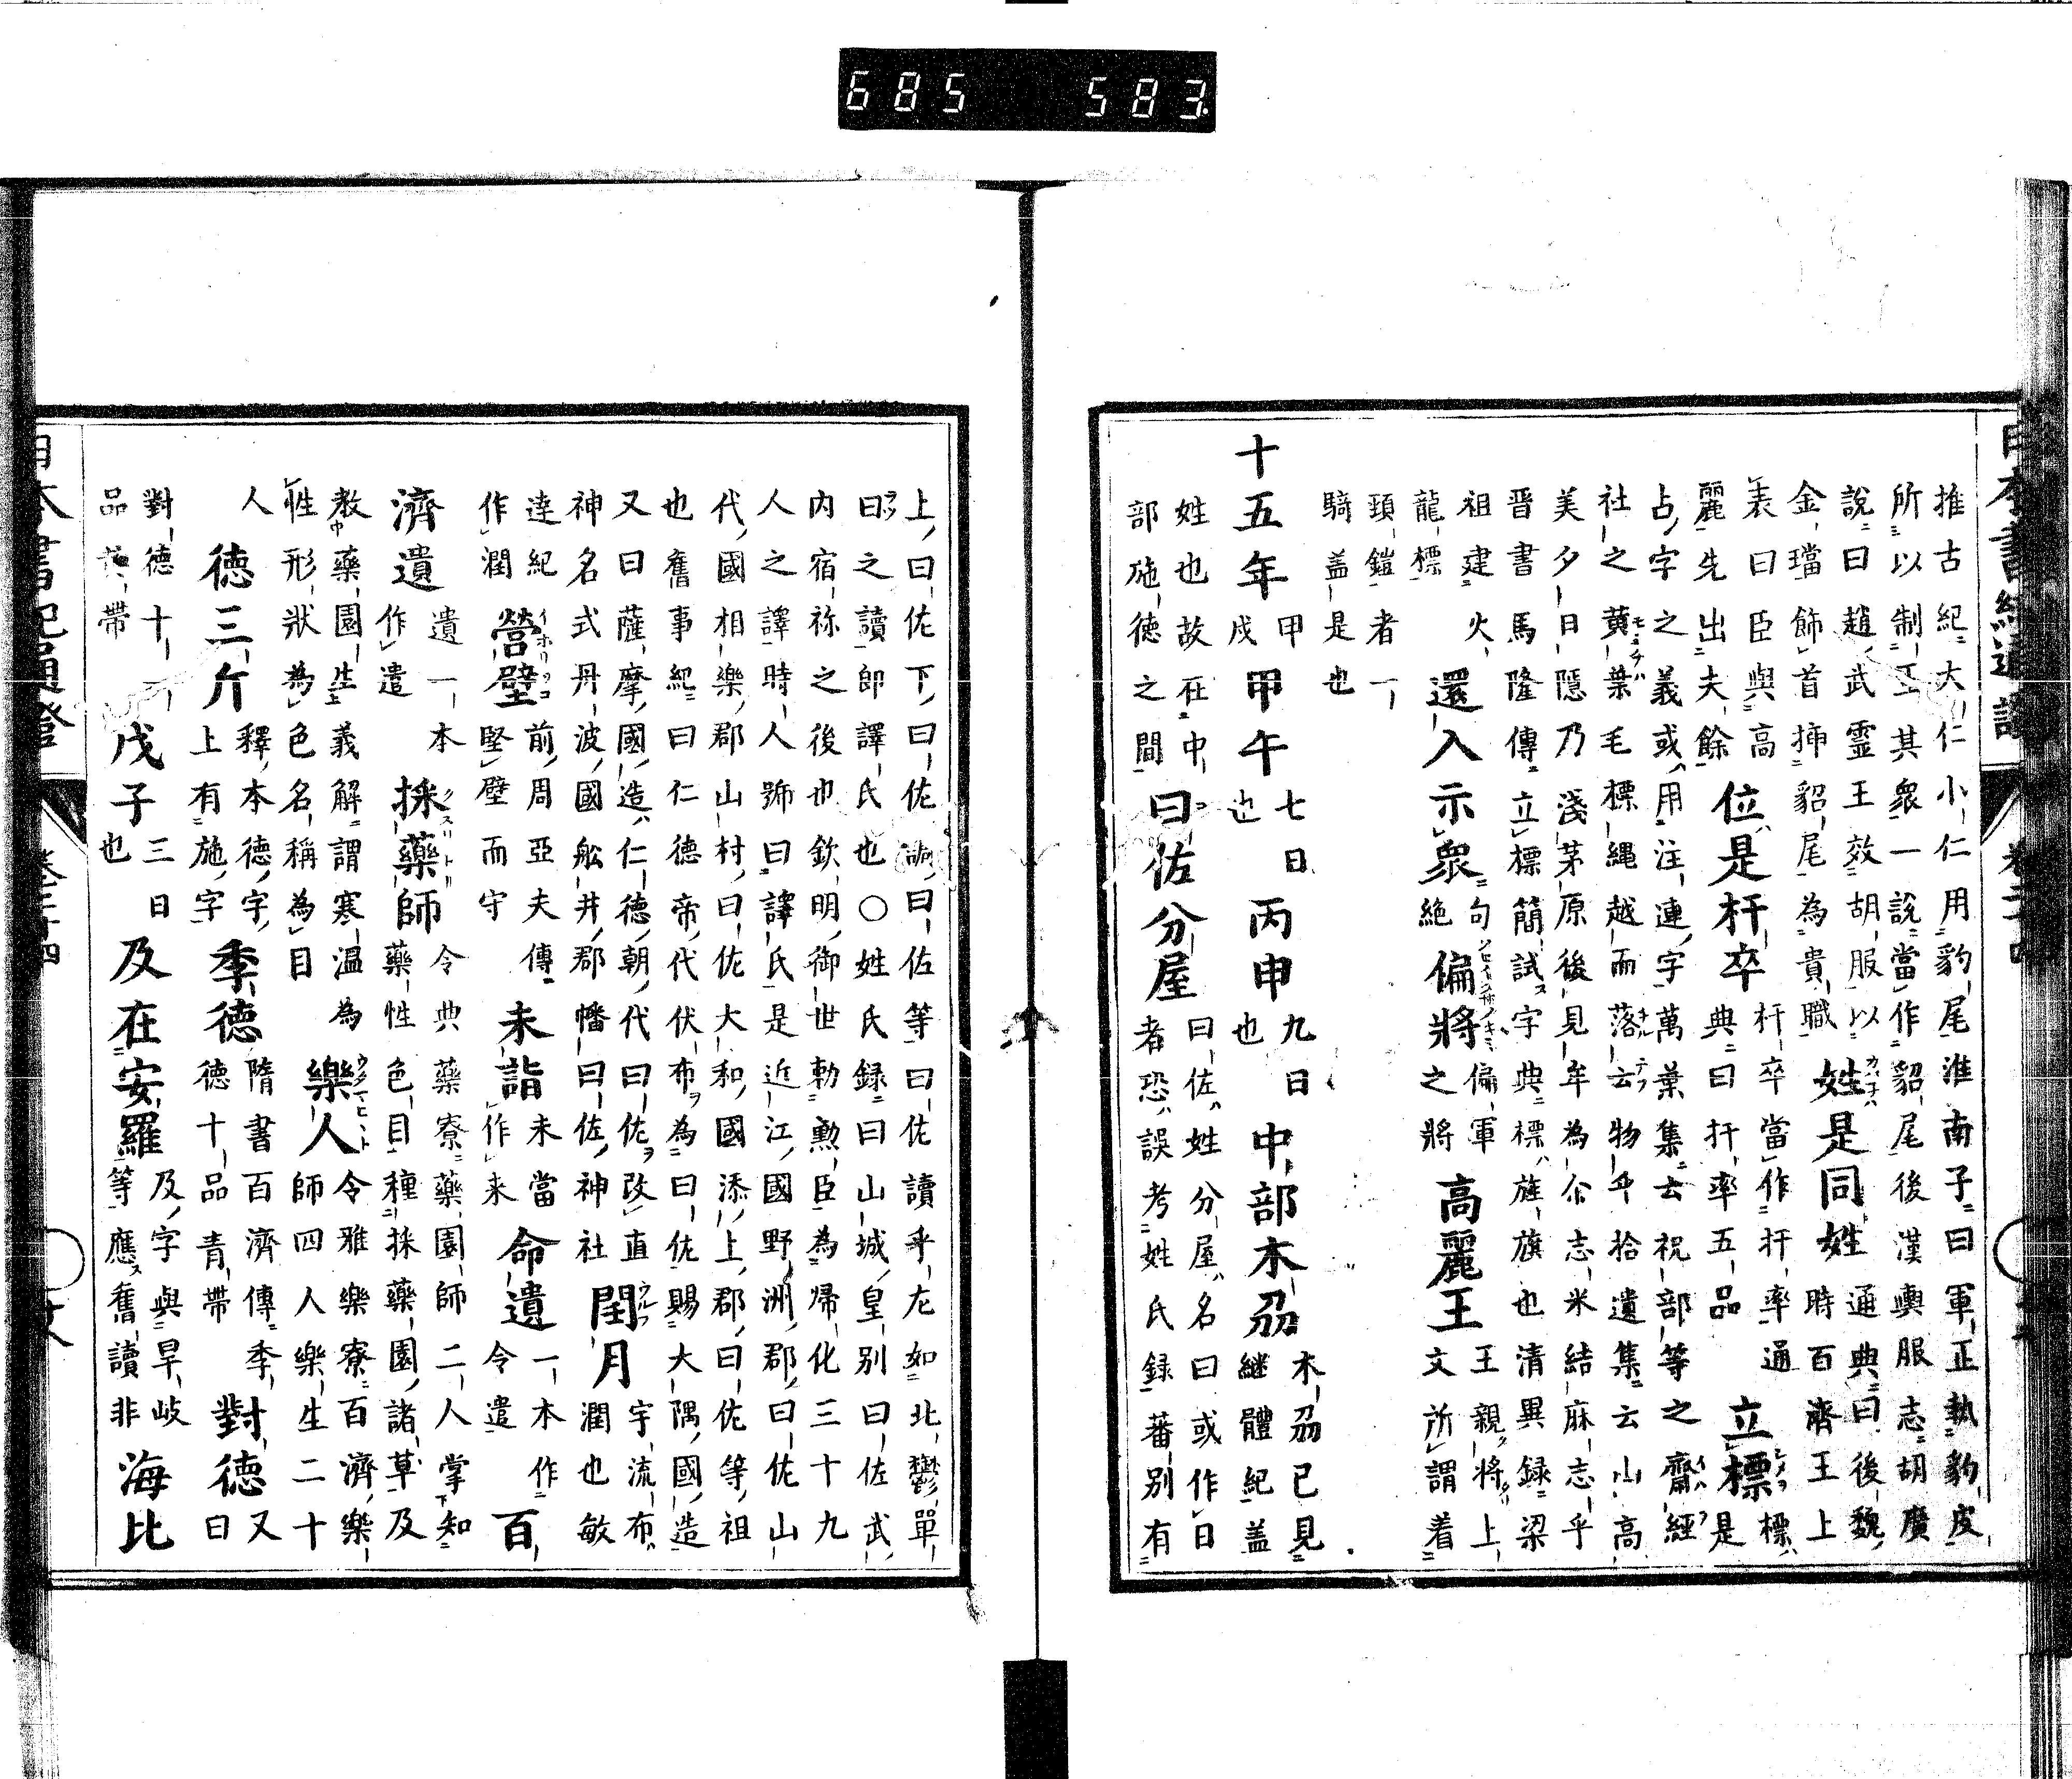 685 583
推古紀大仁小仁用豹尾淮南子曰軍正執豹皮
所以制正其衆一說當作貂尾後漢輿服志胡廣
說曰趙武霊王效胡服以
金璫飾首挿貂尾為貴職
姓是同姓
通典曰後魏
時百濟王上
表曰臣與高
麗先出夫餘
位是杆卒
杆卒當作扞率通
典曰扞率五品
立標
標
是
占字之義或用注連字萬葉集去祝部等之齋經
社之黄葉毛標縄越而落云物乎拾遺集云山高
美夕日隠乃淺茅原後見牟為尒志米結麻志乎
晋書馬隆傳立標簡試字典標旌旗也清異録梁
祖建火
龍標
還入示衆
句
絶
偏將
偏軍
之將
高麗王
王親將上
文所謂着
頚鎧者一
騎盖是也
十五年
甲
戌
甲午
七日
也
丙申
九日
也
中部木刕
木刕已見
継體紀盖
姓也故在中
部施徳之間
曰佐分屋
曰佐姓分屋名曰或作日
者恐誤考姓氏録蕃別有
上曰佐下曰佐
曰佐等曰佐讀乎左如北鬱單
曰之讀即譯氏也○姓氏録曰山城皇別曰佐武
内宿祢之後也欽明御世勅勲臣為帰化三十九
人之譯時人號曰譯氏是近江國野洲郡曰佐山
代國相樂郡山村曰佐大和國添上郡曰佐等祖
也舊事紀曰仁徳帝代伏布為曰佐賜大隅國造
又曰薩摩國造仁徳朝代曰佐改直
神名式丹波國舩井郡幡曰佐神社
閏月
字流布
潤也敏
達紀前
作潤
營壁
周亞夫傳
堅壁而守
未詣
未當
作来
命遺
一本作
令遣
百
濟遺
遺一本
作遣
採藥師
令典藥寮藥園師二人掌知
藥性色目種採藥園諸草及
教藥園生義解謂寒温為
性形狀為色名稱為目
樂人
令雅樂寮百濟樂
師四人樂生二十
人
徳三斤
釋本徳字
上有施字
季徳
隋書百濟傳季
徳十品青帶
對徳
又
曰
對徳十一
品黄帶
戊子
三日
也
及在安羅
及字與旱岐
等應舊讀非
海比